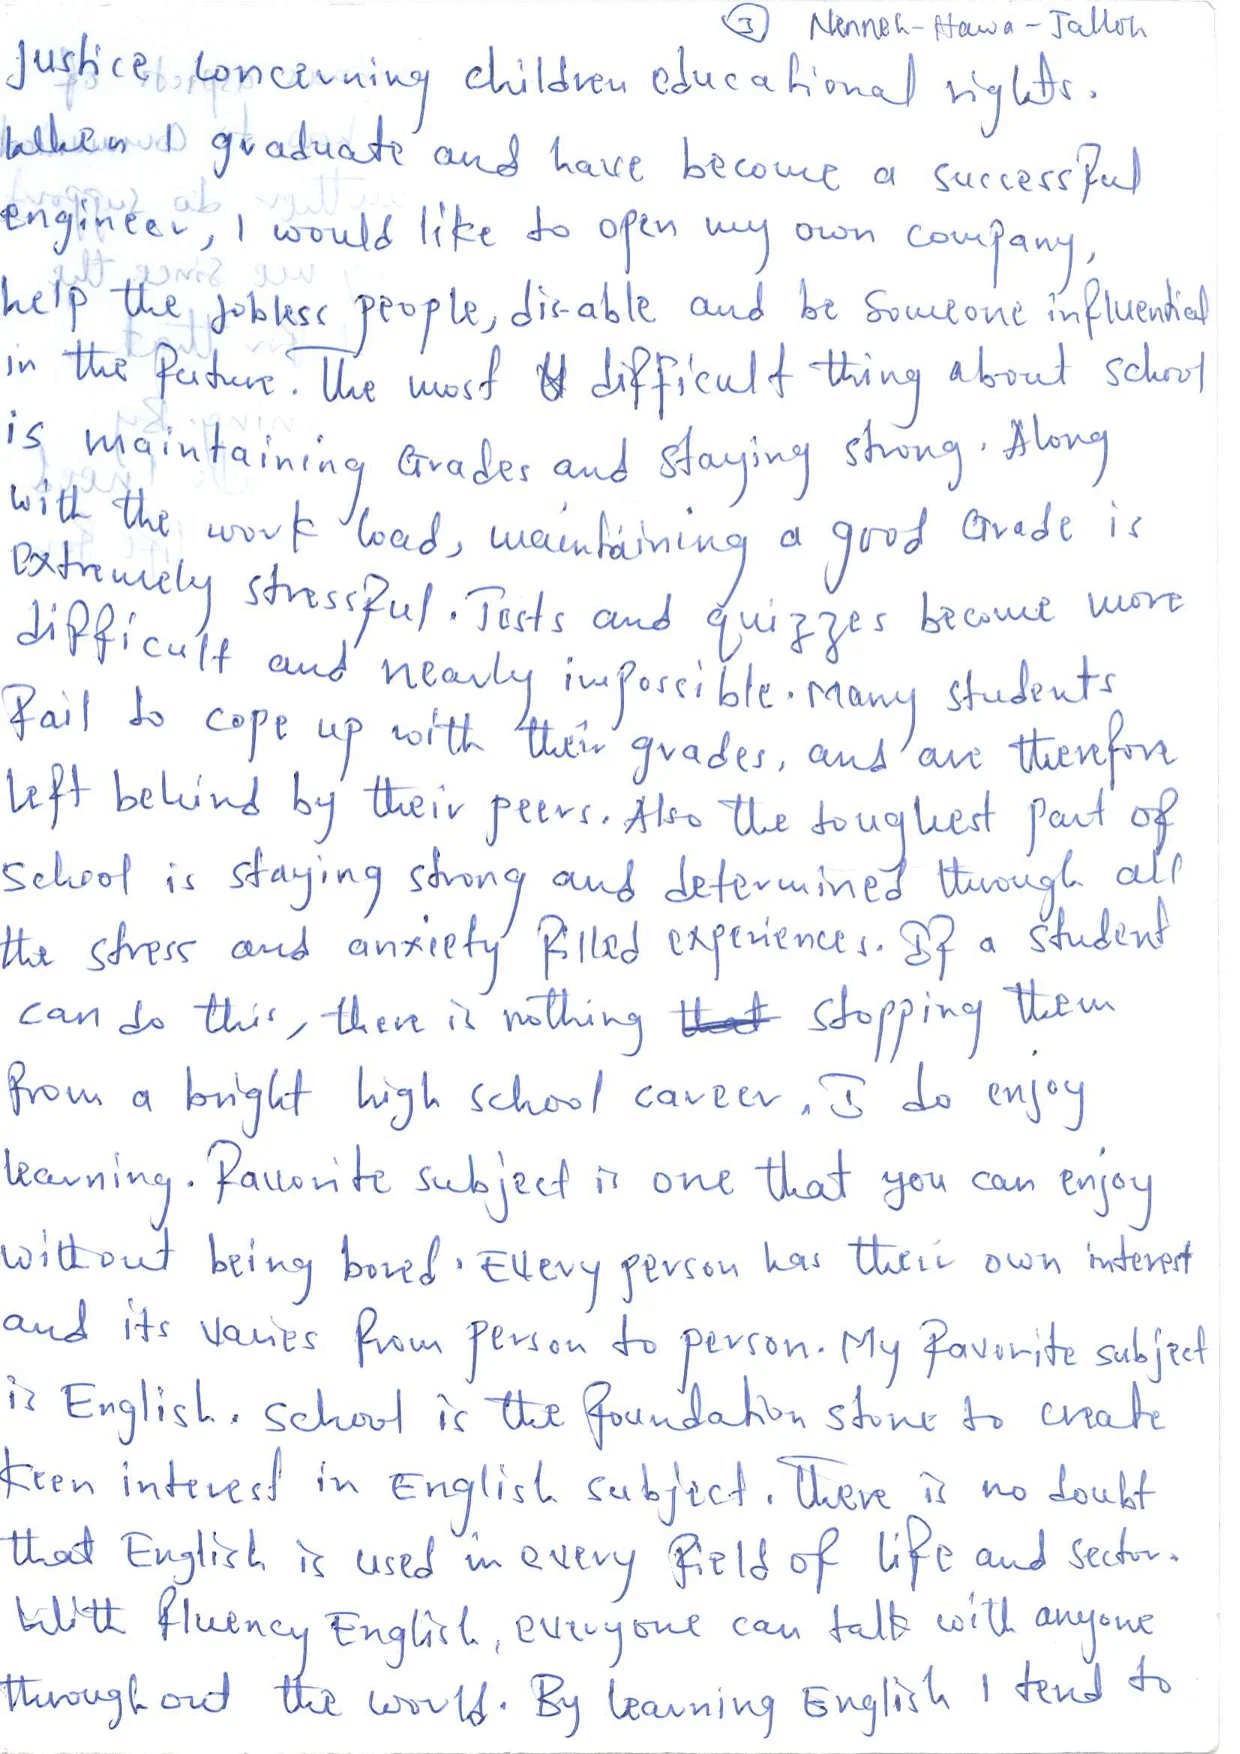 ③ Nenneh-Hawa-Jalloh
Justice concerning children educational rights.
When I graduate and have become a successful
engineer, I would like to open my own company,
help the jobless people, dis-able and be someone influential
in the future. The most difficult thing about school
is maintaining Grades and staying strong. Along
with the work load, maintaining a good Grade is
extremely stressful. Tests and quizzes become more
difficult and nearly impossible. Many students
fail to cope up with their grades, and are therefore
left behind by their peers. Also the toughest part of
school is staying strong and determined through all
the stress and anxiety filled experiences. If a student
can do this, there is nothing that stopping them
from a bright high school career. I do enjoy
learning. Favorite subject is one that you can enjoy
without being bored. Every person has their own interest
and its varies from person to person. My favorite subject
is English. School is the foundation stone to create
keen interest in English subject. There is no doubt
that English is used in every field of life and sector.
With fluency English, everyone can talk with anyone
throughout the world. By learning English I tend to